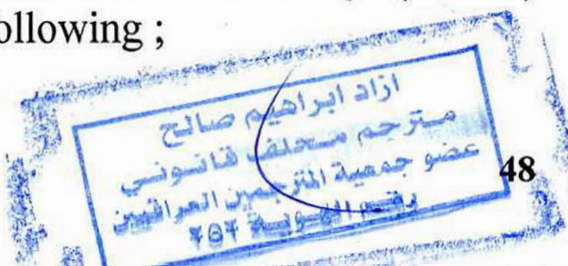 ollowing ;
ازاد ابراهيم صالح
مترجم محلف قانوني
عضو جمعية المترجمين العراقيين
رقم الهوية
48